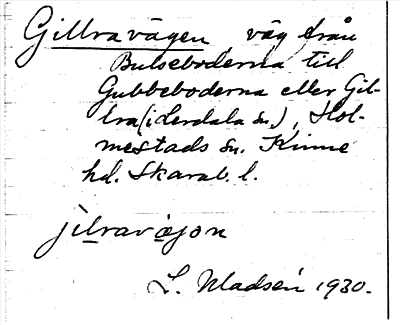 Gillravägen väg från
Bulseboderna till
Gubbeboderna eller Gil-
lra (i Lerdala sn.), Hol-
mestads sn. Kinne
hd. Skarab. l.
jilravæjon
L. Madsén 1930.